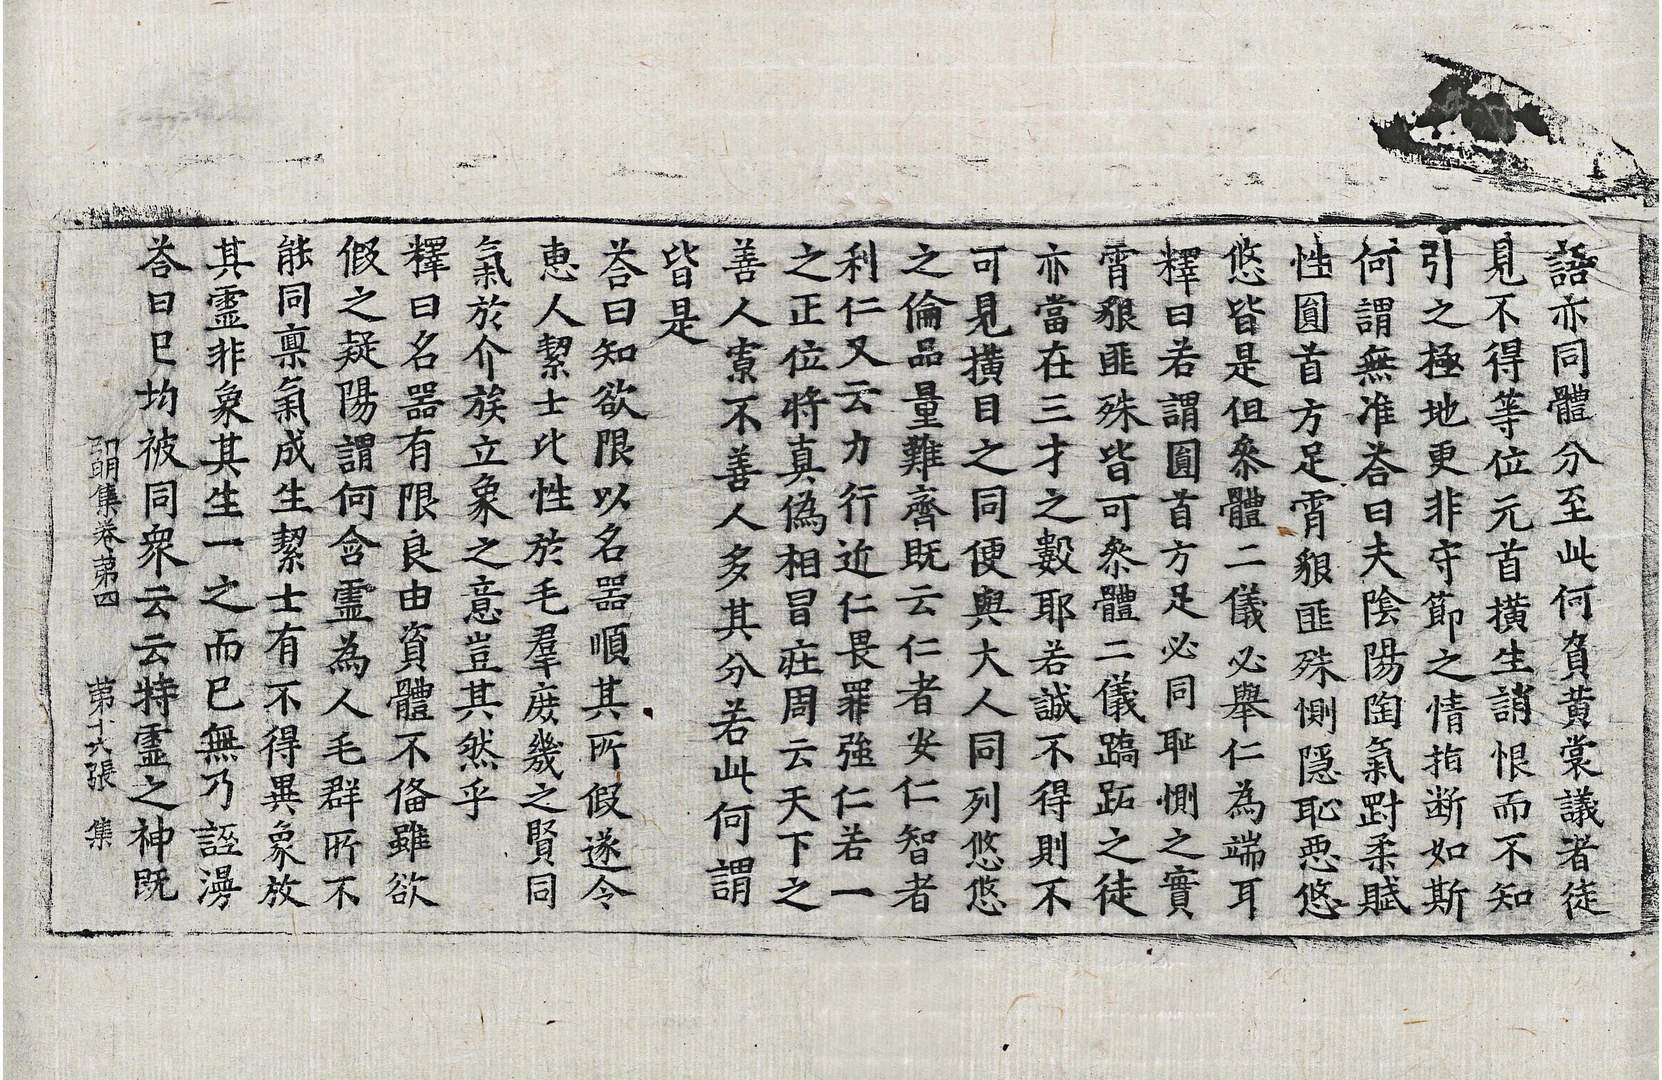 語亦同體分至此何負黃裳議者徒
見不得等位元首橫生誚恨而不知
引之極地更非守節之情指断如斯
何謂無准荅曰夫陰陽陶氣對柔賦
性圎首方足霄貇匪殊惻隠恥悪悠
悠皆是但叅體二儀必舉仁為端耳
釋曰若謂圎首方足必同耻惻之實
霄貇匪殊皆可叅體二儀蹻跖之徒
亦當在三才之數耶若誠不得則不
可見橫目之同便與大人同列悠悠
之倫品量難齊既云仁者安仁智者
利仁又云力行近仁畏罪強仁若一
之正位将真偽相冒莊周云天下之
善人寡不善人多其分若此何謂
皆是
荅曰知欲限以名器順其所假遂令
恵人絜士比性於毛羣庻幾之賢同
氣於介族立象之意豈其然乎
釋曰名器有限良由資體不俻雖欲
假之疑陽謂何含靈為人毛群所不
能同禀氣成生絜士有不得異象放
其靈非象其生一之而已無乃誣漫
荅曰已均被同衆云云特靈之神既
弘明集卷第四 第十六張 集